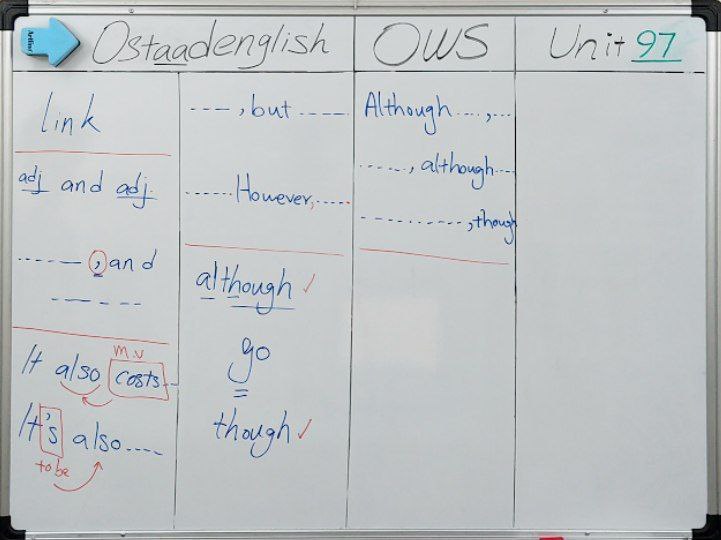 Ostaadenglish
OWS
Unit 97
link
adj and adj.
------ , and
-----
It also costs--
m.v
It's also....
to be
---- , but -----
...... However, .....
although ✓
go
though ✓
Although .... , ...
......, although ....
............ , though